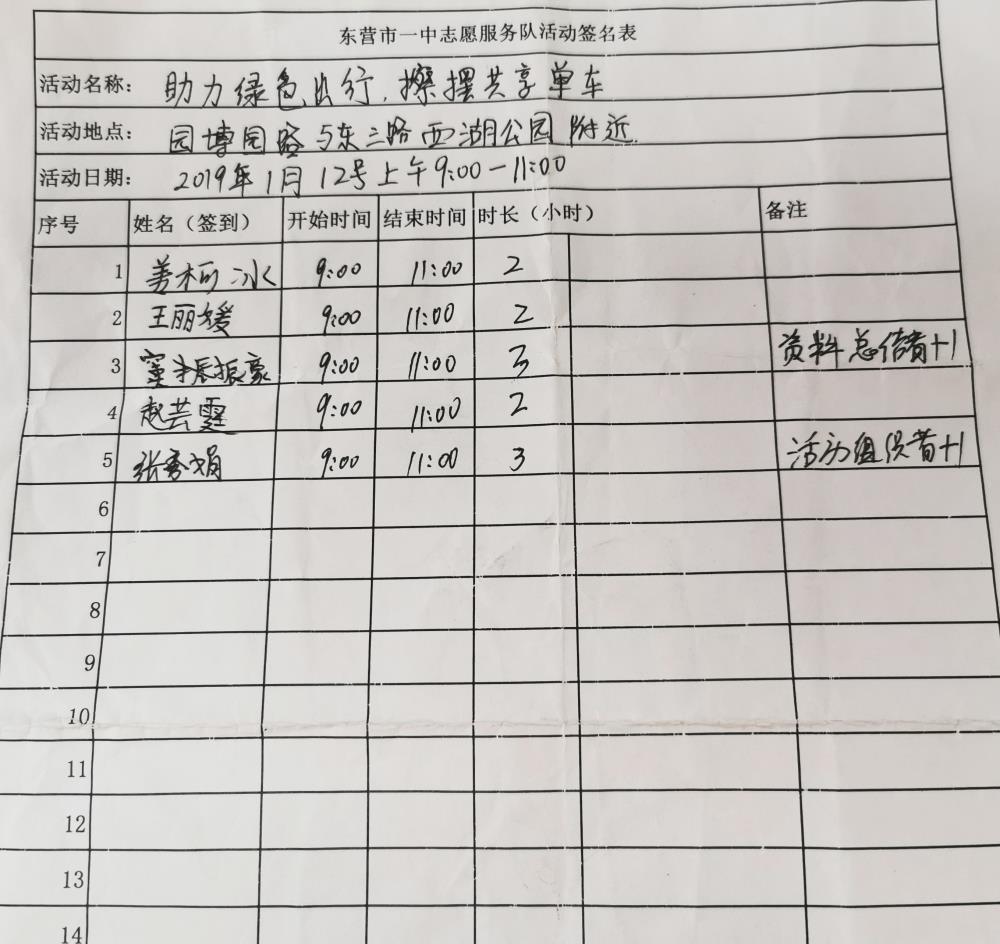 东营市一中志愿服务队活动签名表
活动名称： 助力绿色出行，擦摆共享单车
活动地点： 园博园路与东三路西湖公园附近
活动日期： 2019年1月12号上午9:00-11:00
序号 姓名（签到） 开始时间 结束时间 时长（小时） 备注
1 姜柯冰 9:00 11:00 2
2 王丽媛 9:00 11:00 2
3 振豪 9:00 11:00 3 资料总结者+1
4 赵芸霆 9:00 11:00 2
5 张秀娟 9:00 11:00 3 活动组织者+1
6
7
8
9
10
11
12
13
14